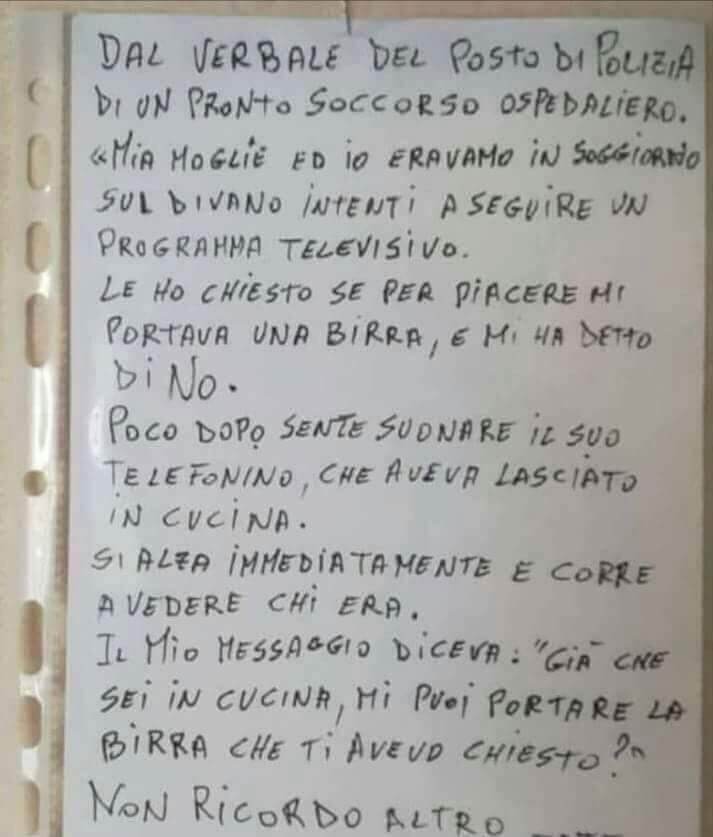 DAL VERBALE DEL POSTO DI POLIZIA
DI UN PRONTO SOCCORSO OSPEDALIERO.
«MIA MOGLIE ED IO ERAVAMO IN SOGGIORNO
SUL DIVANO INTENTI A SEGUIRE UN
PROGRAMMA TELEVISIVO.
LE HO CHIESTO SE PER PIACERE MI
PORTAVA UNA BIRRA, E MI HA DETTO
DI NO.
POCO DOPO SENTE SUONARE IL SUO
TELEFONINO, CHE AVEVA LASCIATO
IN CUCINA.
SI ALZA IMMEDIATAMENTE E CORRE
A VEDERE CHI ERA.
IL MIO MESSAGGIO DICEVA: "GIÀ CHE
SEI IN CUCINA, MI PUOI PORTARE LA
BIRRA CHE TI AVEVO CHIESTO?"
NON RICORDO ALTRO